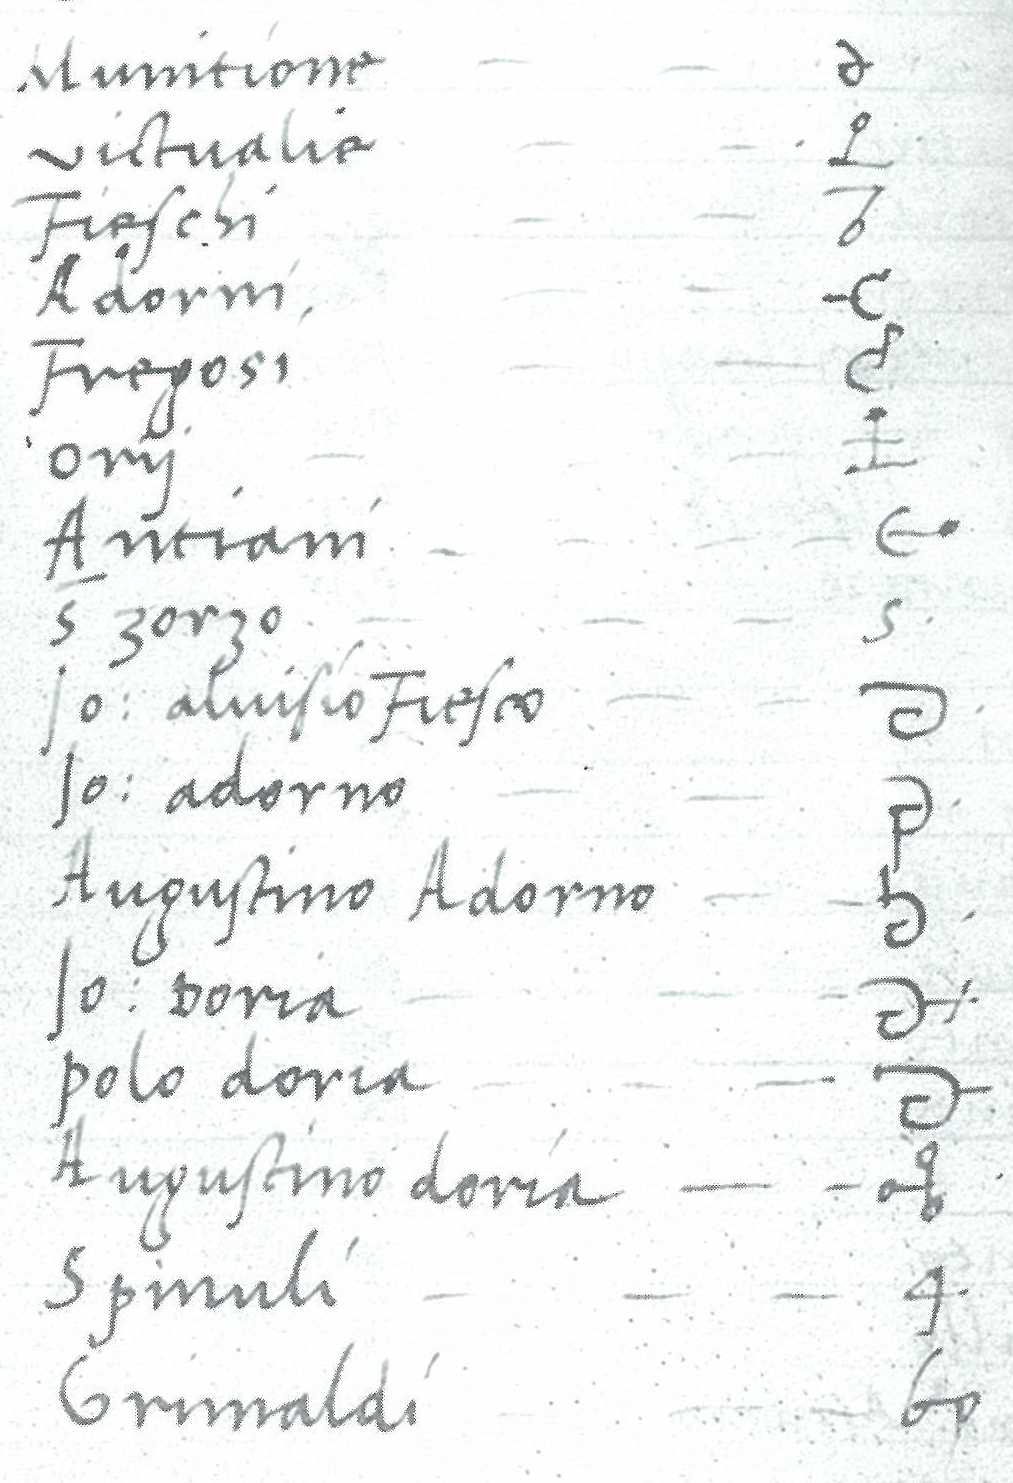 Munitione
victualie
Fieschi
Adorni
Fregosi
orij
Antiani
s zorzo s
Jo: aluisio Fiesco
Jo: adorno
Augustino Adorno
Jo: Doria
polo doria
Augustino doria
Spinuli 4
Grimaldi